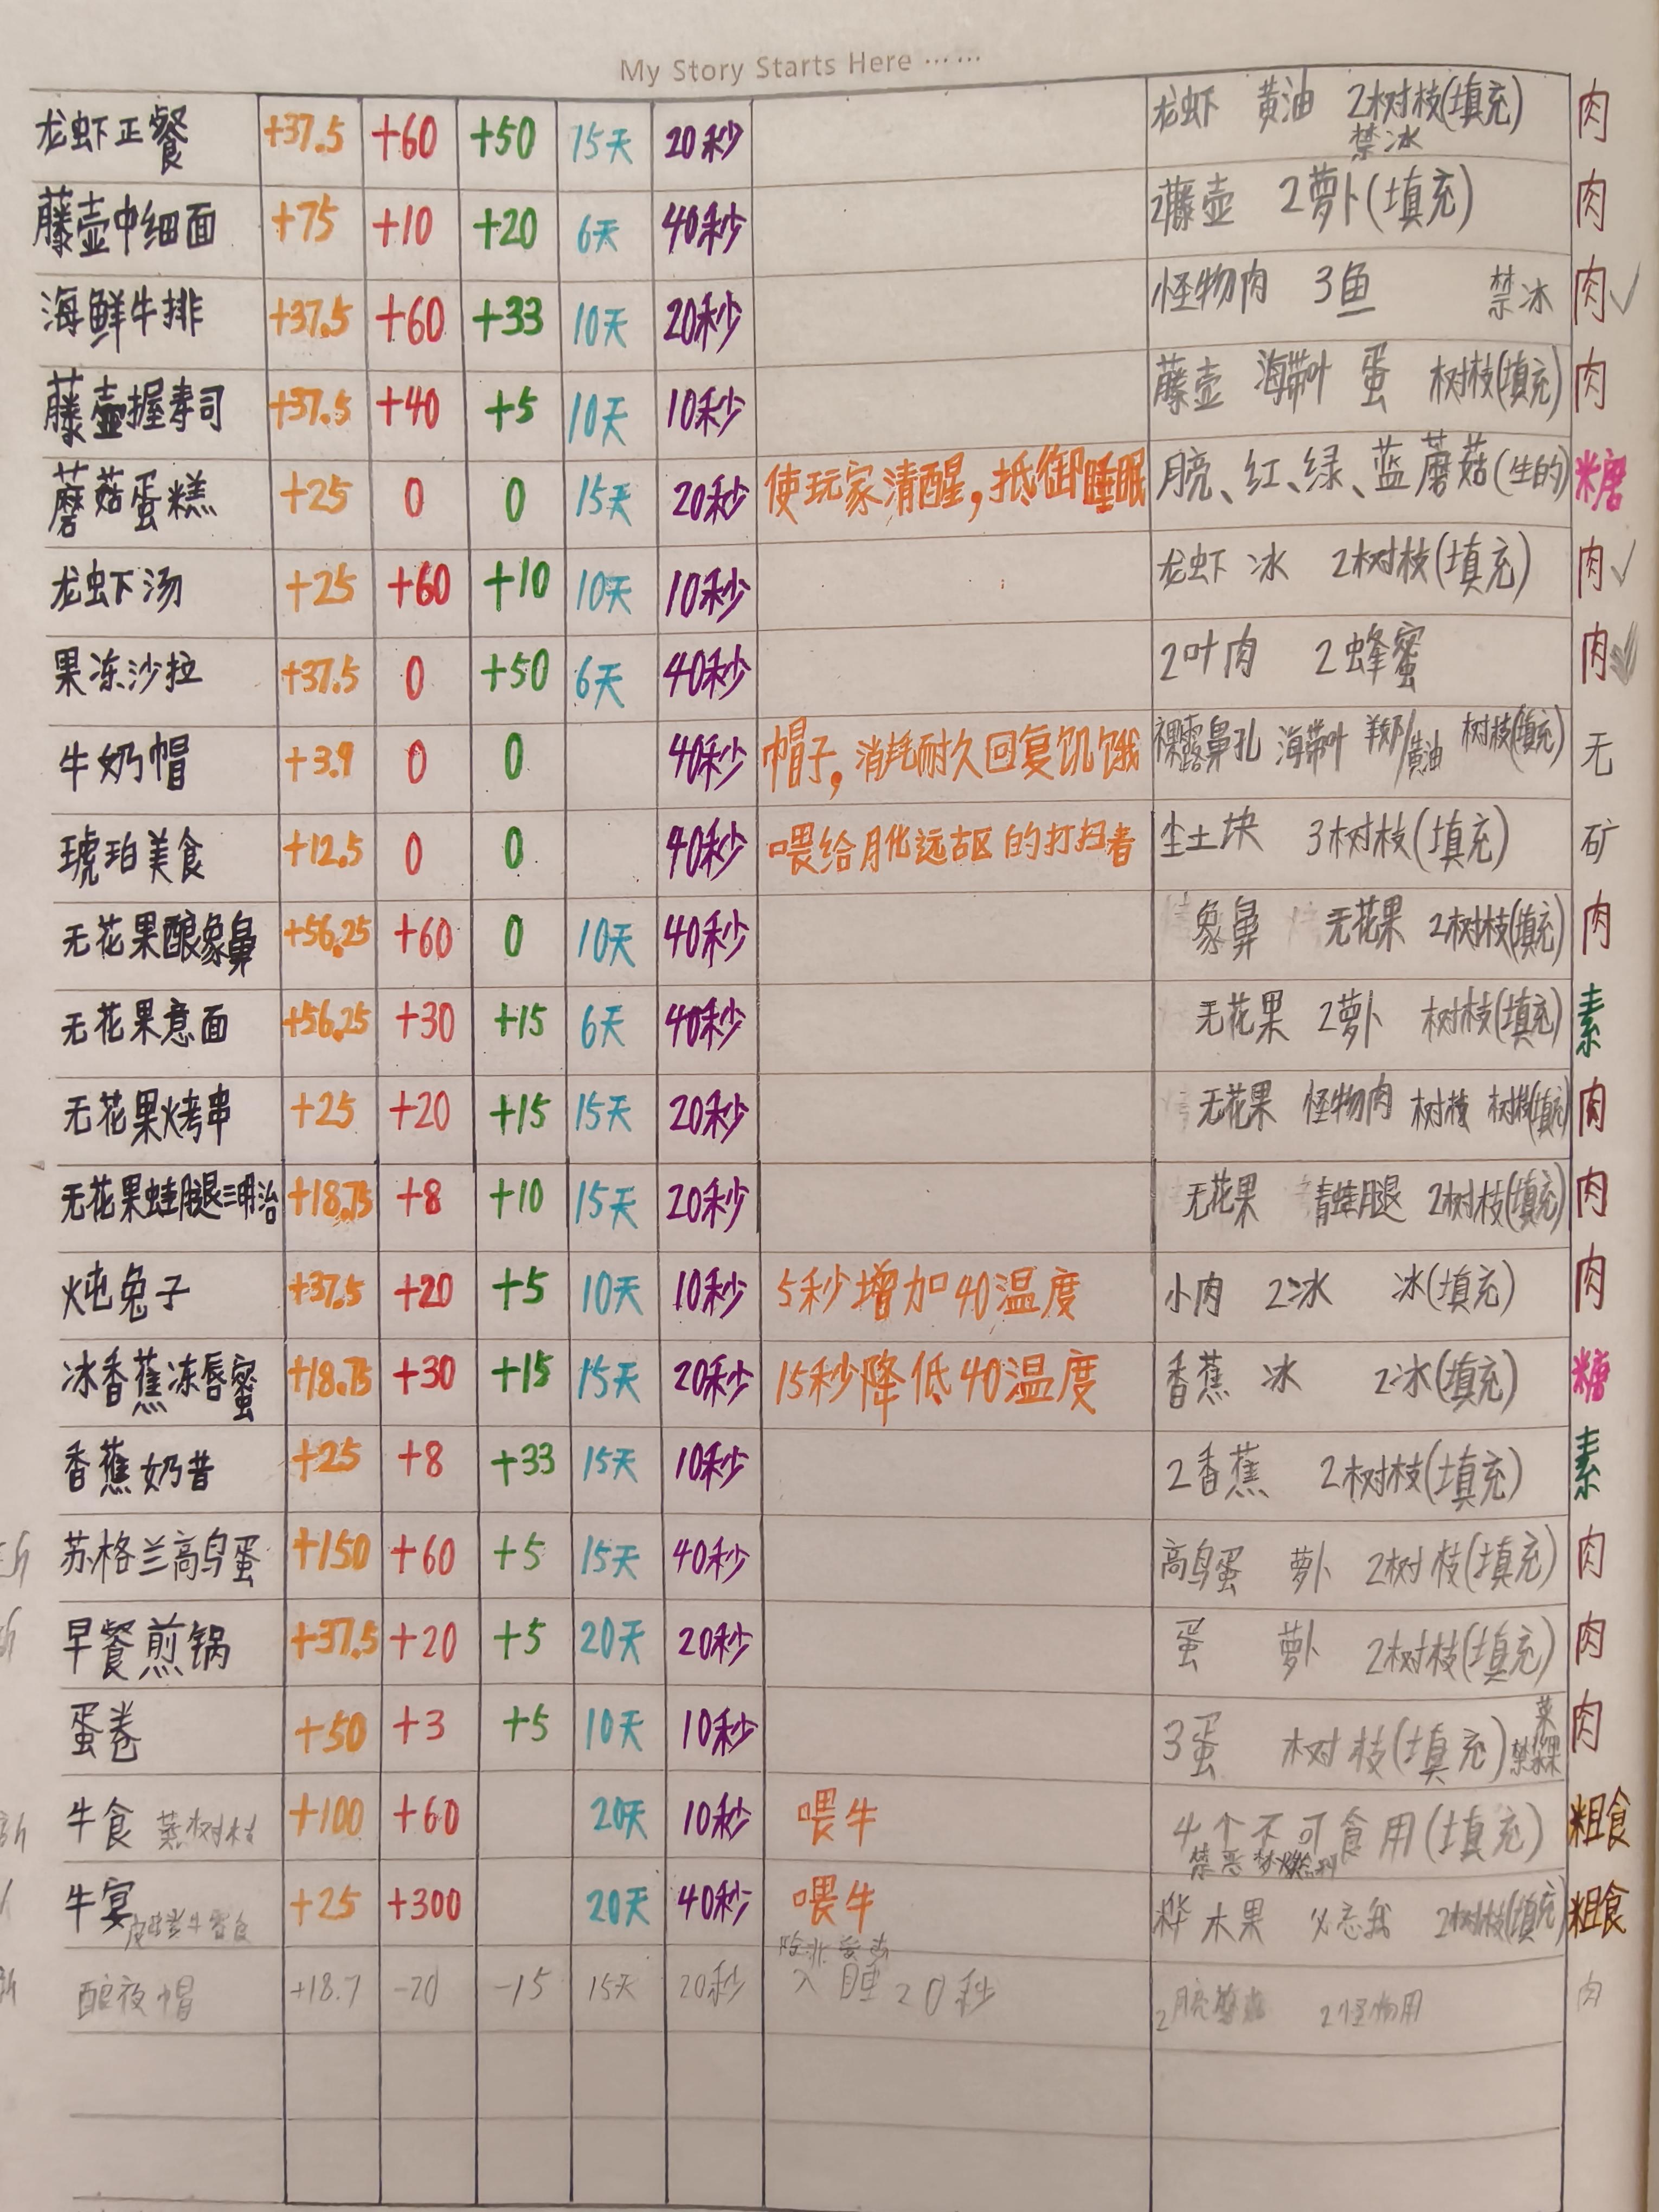 My Story Starts Here ······
龙虾正餐 +37.5 +60 +50 15天 20秒 龙虾 黄油 2树枝(填充) 禁冰 肉
藤壶中细面 +75 +10 +20 6天 40秒 2藤壶 2萝卜(填充) 肉
海鲜牛排 +37.5 +60 +33 10天 20秒 怪物肉 3鱼 禁冰 肉✓
藤壶握寿司 +37.5 +40 +5 10天 10秒 藤壶 海带叶 蛋 树枝(填充) 肉
蘑菇蛋糕 +25 0 0 15天 20秒 使玩家清醒,抵御睡眠 月亮、红、绿、蓝蘑菇(生的) 糖
龙虾汤 +25 +60 +10 10天 10秒 龙虾 冰 2树枝(填充) 肉✓
果冻沙拉 +37.5 0 +50 6天 40秒 2叶肉 2蜂蜜 肉
牛奶帽 +3.9 0 0 40秒 帽子,消耗耐久回复饥饿 裸露鼻孔 海带叶 羊奶/黄油 树枝(填充) 无
琥珀美食 +12.5 0 0 40秒 喂给月化远古区的打扫者 尘土块 3树枝(填充) 矿
无花果酿象鼻 +56.25 +60 0 10天 40秒 象鼻 无花果 2树枝(填充) 肉
无花果意面 +56.25 +30 +15 6天 40秒 无花果 2萝卜 树枝(填充) 素
无花果烤串 +25 +20 +15 15天 20秒 无花果 怪物肉 树枝 树枝(填充) 肉
无花果蛙腿三明治 +18.75 +8 +10 15天 20秒 无花果 青蛙腿 2树枝(填充) 肉
炖兔子 +37.5 +20 +5 10天 10秒 5秒增加40温度 小肉 2冰 冰(填充) 肉
冰香蕉冻唇蜜 +18.75 +30 +15 15天 20秒 15秒降低40温度 香蕉 冰 2冰(填充) 糖
香蕉奶昔 +25 +8 +33 15天 10秒 2香蕉 2树枝(填充) 素
苏格兰高鸟蛋 +150 +60 +5 15天 40秒 高鸟蛋 萝卜 2树枝(填充) 肉
早餐煎锅 +37.5 +20 +5 20天 20秒 蛋 萝卜 2树枝(填充) 肉
蛋卷 +50 +3 +5 10天 10秒 3蛋 树枝(填充) 肉
牛食 蒸树枝 +100 +60 20天 10秒 喂牛 4个不可食用(填充) 禁恶梦燃料 粗食
牛宴 +25 +300 20天 40秒 喂牛 桦木果 必忘我 2树枝(填充) 粗食
酿夜帽 +18.7 -20 -15 15天 20秒 入睡20秒 2月亮蘑菇 2怪物肉 肉